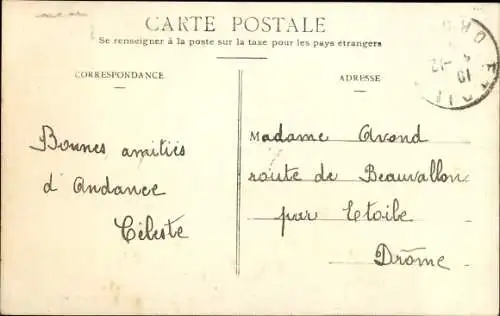 CARTE POSTALE
Se renseigner à la poste sur la taxe pour les pays étrangers
CORRESPONDANCE
ADRESSE
Bonnes amitiés
d'Andance
Céleste
Madame Avond
route de Beauvallon
par Etoile
Drôme